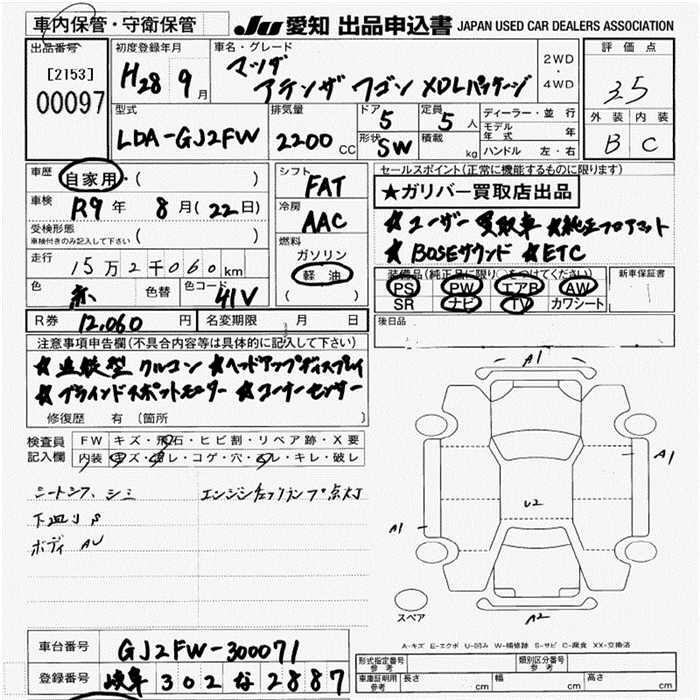 車内保管・守衛保管
JU 愛知 出品申込書 JAPAN USED CAR DEALERS ASSOCIATION
出品番号
[2153]
00097
初度登録年月
H28 9月
車名・グレード
マツダ
アテンザ ワゴン XDLパッケージ
2WD
・
4WD
評価点
3.5
外装 内装
B C
型式
LDA-GJ2FW
排気量
2200 CC
ドア
5
定員
5人
形状
SW
積載
kg
ディーラー・並行
モデル年式 年
ハンドル 左・右
車歴
自家用・( )
車検
R9年 8月(22日)
受検形態
車検付きのみ記入して下さい ( )
走行
15万2千060km
色
赤
色替
色コード
41V
シフト
FAT
冷房
AAC
燃料
ガソリン
軽油
( )
セールスポイント(正常に機能するものに限ります)
★ガリバー買取店出品
★ユーザー買取車 ★純正フロアマット
★BOSEサウンド ★ETC
装備品(純正品に限り○をつけてください)
PS PW エアB AW
SR ナビ TV カワシート
新車保証書
後日品
R券 12,060円
名変期限 月 日
注意事項申告欄(不具合内容等は具体的に記入して下さい)
★追従型クルコン ★ヘッドアップディスプレイ
★ブラインドスポットモニター ★コーナーセンサー
修復歴 有 〔箇所 〕
検査員記入欄
FW キズ・飛石・ヒビ割・リペア跡・X要
内装 キズ・汚レ・コゲ・穴・スレ・キレ・破レ
シートシワ、シミ
エンジンチェックランプ点灯
下廻りS
ボディ AU
A1
A1
A1
U2
A2
スペア
A-キズ E-エクボ U-凹み W-補修跡 S-サビ C-腐食 XX-交換済
車台番号
GJ2FW-300071
登録番号
岐阜 302 な 2887
形式指定番号 参考
類別区分番号 参考
車庫証明用 参考
長さ cm
幅 cm
高さ cm